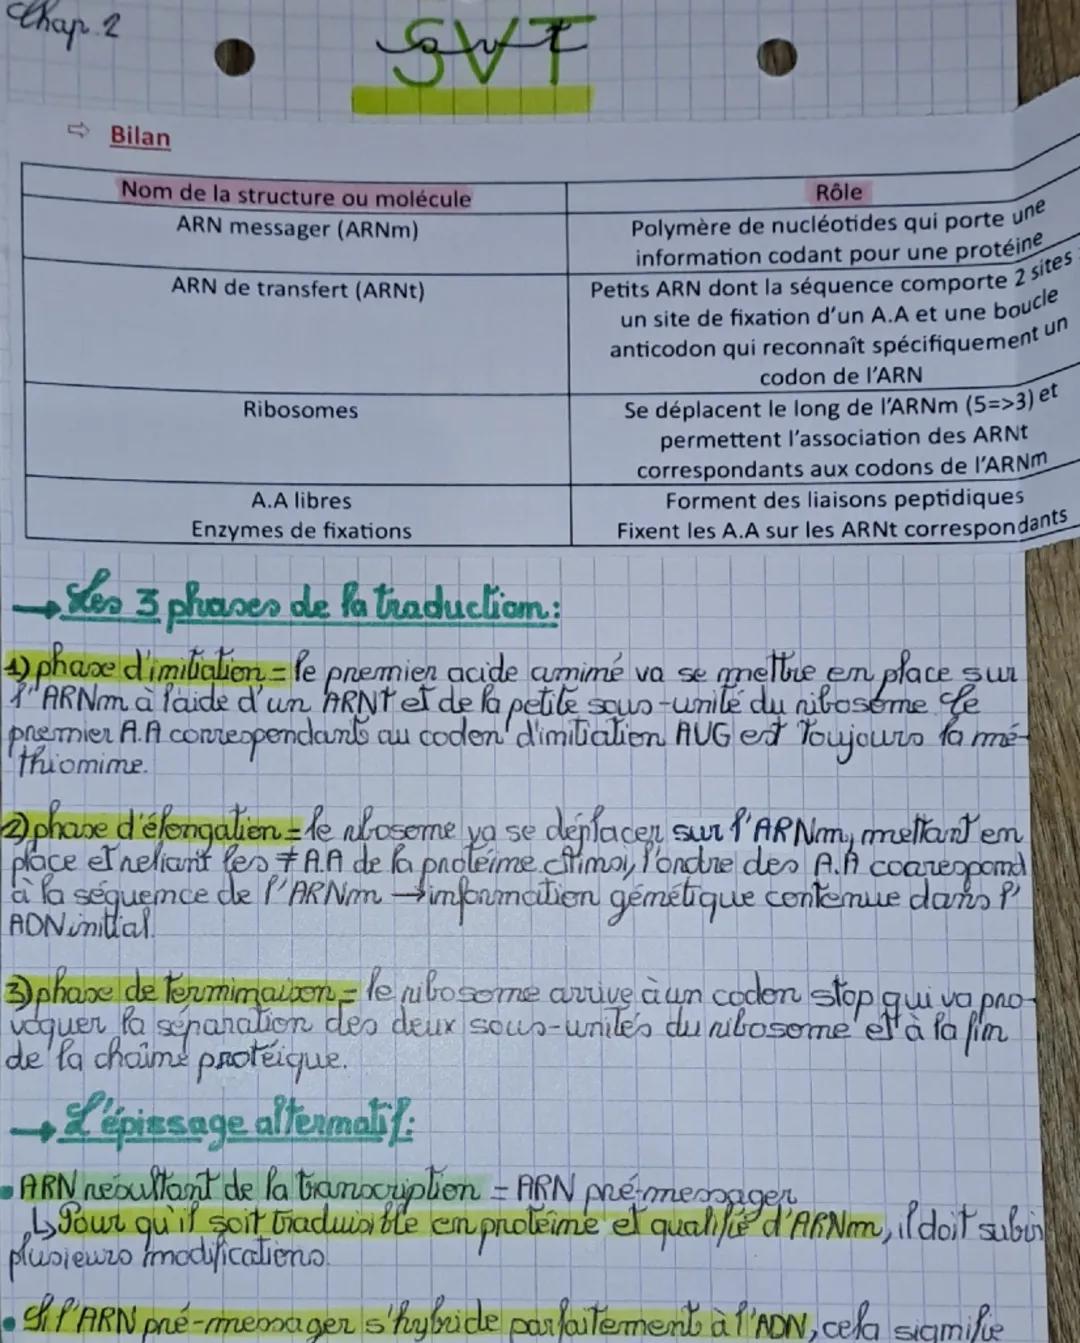 Chap. 2
SVT
⇨ Bilan
Nom de la structure ou molécule
Rôle
ARN messager (ARNm)
Polymère de nucléotides qui porte une
information codant pour une protéine
ARN de transfert (ARNt)
Petits ARN dont la séquence comporte 2 sites
un site de fixation d'un A.A et une boucle
anticodon qui reconnaît spécifiquement un
codon de l'ARN
Ribosomes
Se déplacent le long de l'ARNm (5=>3) et
permettent l'association des ARNt
correspondants aux codons de l'ARNm
A.A libres
Forment des liaisons peptidiques
Enzymes de fixations
Fixent les A.A sur les ARNt correspondants
→ Les 3 phases de la traduction :
1) phase d'initiation = le premier acide aminé va se mettre en place sur
l'ARNm à l'aide d'un ARNt et de la petite sous-unité du ribosome. Le
premier A.A correspondants au codon d'initiation AUG est toujours la mé-
thionine.
2) phase d'élongation = le ribosome va se déplacer sur l'ARNm, mettant en
place et reliant les ≠ A.A de la protéine. Ainsi, l'ordre des A.A correspond
à la séquence de l'ARNm → information génétique contenue dans l'
ADN initial.
3) phase de terminaison = le ribosome arrive à un codon stop qui va pro-
voquer la séparation des deux sous-unités du ribosome et à la fin
de la chaîne protéique.
→ L'épissage alternatif :
• ARN résultant de la transcription = ARN pré-messager
↳ Pour qu'il soit traduisible en protéine et qualifié d'ARNm, il doit subir
plusieurs modifications.
• Si l'ARN pré-messager s'hybride parfaitement à l'ADN, cela signifie